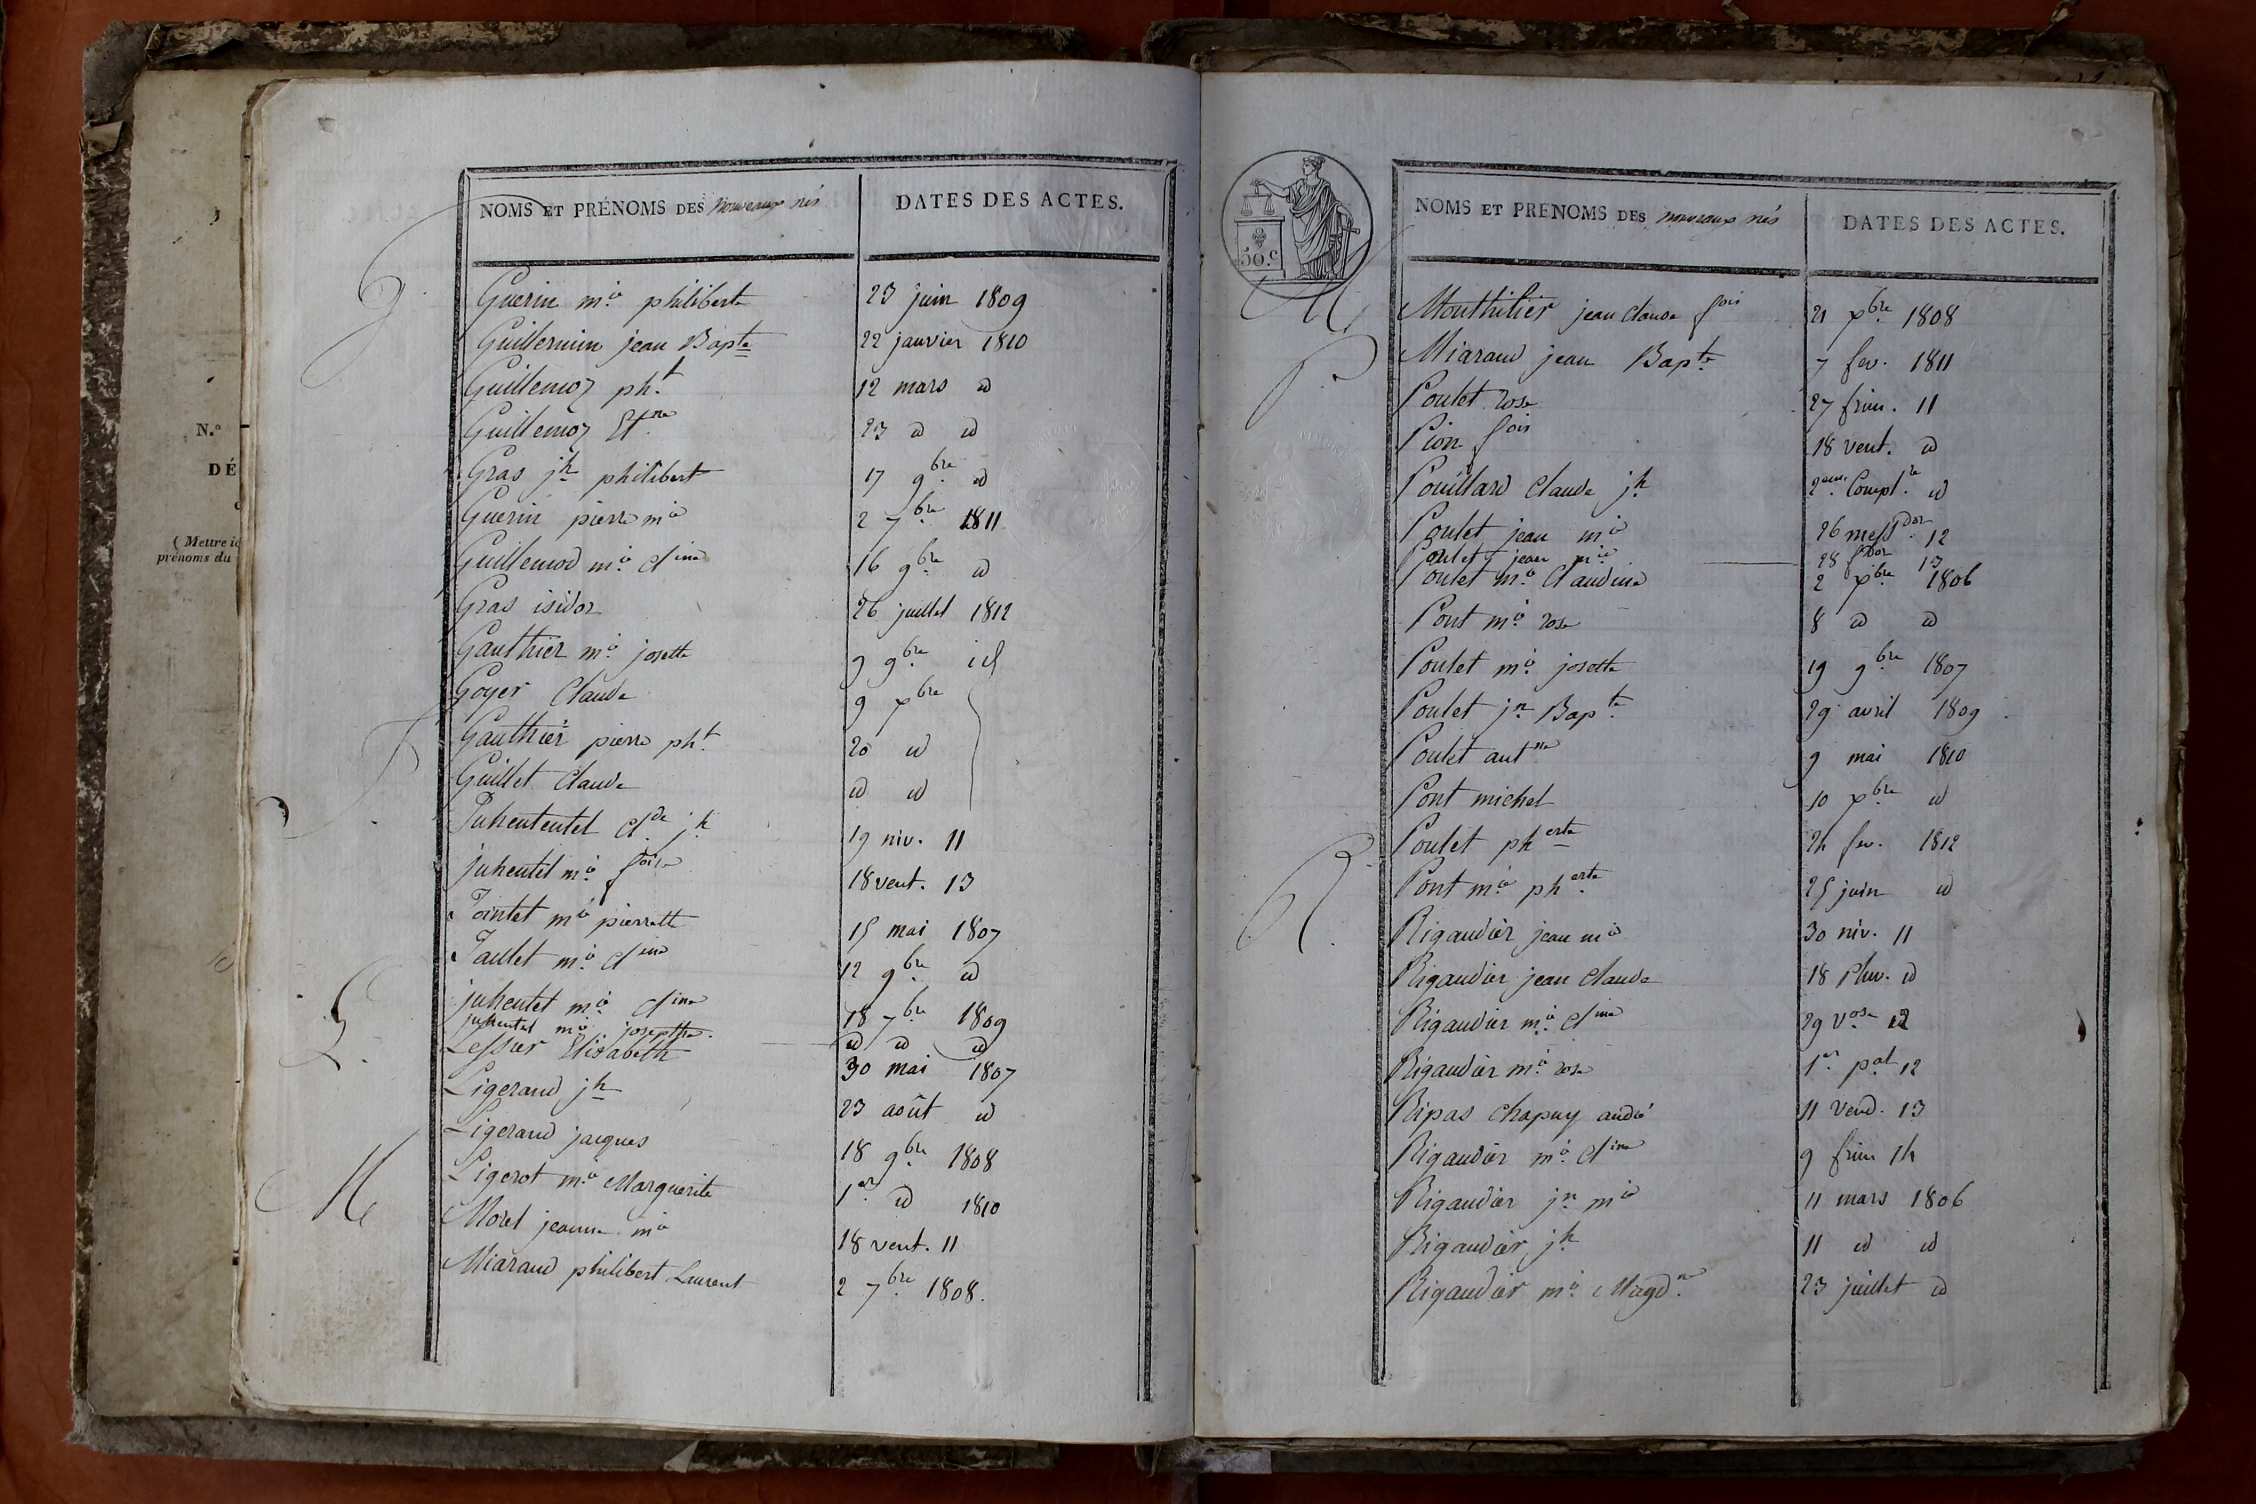 N.º
DÉ
( Mettre ic
prénoms du
G
NOMS ET PRÉNOMS DES nouveaux nés
DATES DES ACTES.
Guerin m.ie philiberte 23 juin 1809
Guillermin jean Bapte 22 janvier 1810
Guillemoz ph.t 12 mars id
Guillemoz Et.ne 23 id id
Gras jh philibert 17 9bre id
Guerin pierre m.ie 2 7bre 1811
Guillemod m.ie Cline 16 9bre id
Gras isidor 26 juillet 1812
Gauthier m.ie josette 9 9bre id
Goyer Claude 9 xbre
Gauthier pierre ph.t 20 id
Guillet Claude id id
J
Juhententet Cl.de jh 19 niv. 11
juhentet m.ie foise 18 vent. 13
Jointet m.ie pierrette 15 mai 1807
Jaillet m.ie Cline 12 9bre id
juhentet m.ie Cline 18 7bre 1809
juhentet m.ie josephte. id id id
L
Lessier Elisabeth 30 mai 1807
Ligeraud jh 23 août id
Ligeraud jacques 18 9bre 1808
Ligerot m.ie Marguerite 1er id 1810
M
Morel jeanne m.ie 18 vent. 11
Miaraud philibert Laurent 2 7bre 1808.
50 C
NOMS ET PRÉNOMS DES nouveaux nés
DATES DES ACTES.
M
Monthilier jean Claude fois 21 xbre 1808
Miaraud jean Bapte 7 fev. 1811
P
Poulet rose 27 frim. 11
Pion fois 18 vent. id
Pouillard Claude jh 2eme Compl.re id
Poulet jean m.ie 26 messdor 12
Poulet jean m.ie 28 fdor 13
Poulet m.ie Claudine 2 xbre 1806
Pont m.ie rose 8 id id
Poulet m.ie josette 19 9bre 1807
Poulet jn Bapte 29 avril 1809
Poulet antne 9 mai 1810
Pont michel 10 xbre id
Poulet pherte 24 fev. 1812
Pont m.ie pherte 25 juin id
R
Rigaudier jean m.ie 30 niv. 11
Rigaudier jean Claude 18 Pluv. id
Rigaudier m.ie Cline 29 Vose 12
Rigaudier m.ie rose 1er pal 12
Ripas chapuy andré 11 Vend. 13
Rigaudier m.ie Cline 9 frim 14
Rigaudier jn m.ie 11 mars 1806
Rigaudier jh 11 id id
Rigaudier m.ie Magd.ne 23 juillet id